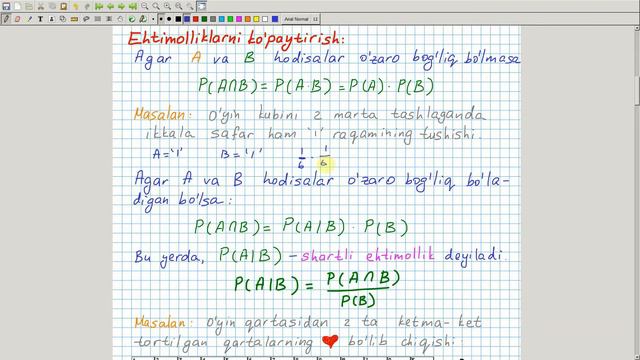 Arial Normal 12
Ehtimolliklarni ko'paytirish:
Agar A va B hodisalar o'zaro bog'liq bo'lmasa
P(A∩B) = P(A·B) = P(A) · P(B)
Masalan: O'yin kubini 2 marta tashlaganda
ikkala safar ham '1' raqamining tushishi.
A='1' B='1' 1/6 · 1/6
Agar A va B hodisalar o'zaro bog'liq bo'la-
digan bo'lsa:
P(A∩B) = P(A|B) · P(B)
Bu yerda, P(A|B) – shartli ehtimollik deyiladi.
P(A|B) = P(A∩B)/P(B)
Masalan: O'yin qartasidan 2 ta ketma-ket
tortilgan qartalarning ♥ bo'lib chiqishi: